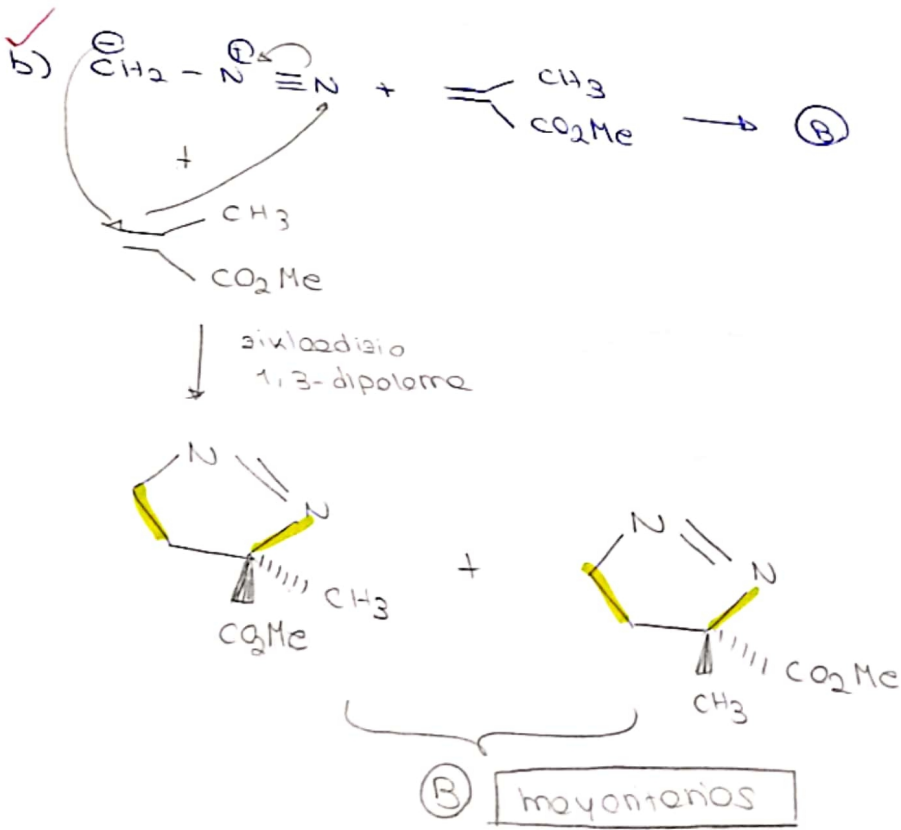 b) ⊖CH2 – N⊕ ≡ N + = CH3 CO2Me → B
+
CH3
CO2Me
zikloadizio
1,3-dipolarra
N N
CH3
CO2Me
+
N N
CO2Me
CH3
B mayoritarios